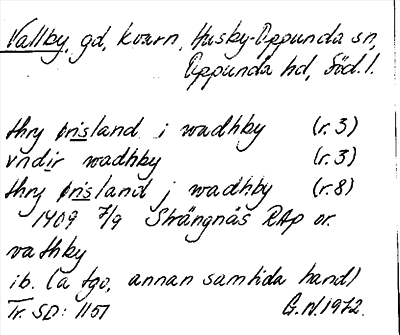 Vallby, gd, kvarn, Husby-Oppunda sn,
Oppunda hd, Söd. l.
thry ørisland i wadhby (r. 3)
vndir wadhby (r. 3)
thry ørisland j wadhby (r. 8)
1409 7/9 Strängnäs RAp or.
vathby
ib. (a tgo, annan samtida hand)
Tr. SD: 1151 G.N. 1972.